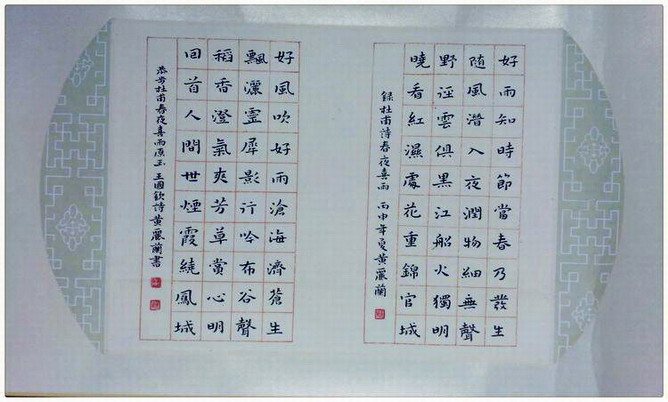 好雨知時節當春乃發生
随風潛入夜潤物細無聲
野徑雲俱黑江船火獨明
曉看紅濕處花重錦官城
錄杜甫詩春夜喜雨 丙申年夏黃麗蘭
好風吹好雨滄海濟蒼生
飄灑靈犀影行吟布谷聲
稻香澄氣爽芳草賞心明
回首人間世煙霞繞鳳城
恭步杜甫春夜喜雨原玉 王國欽詩黃麗蘭書